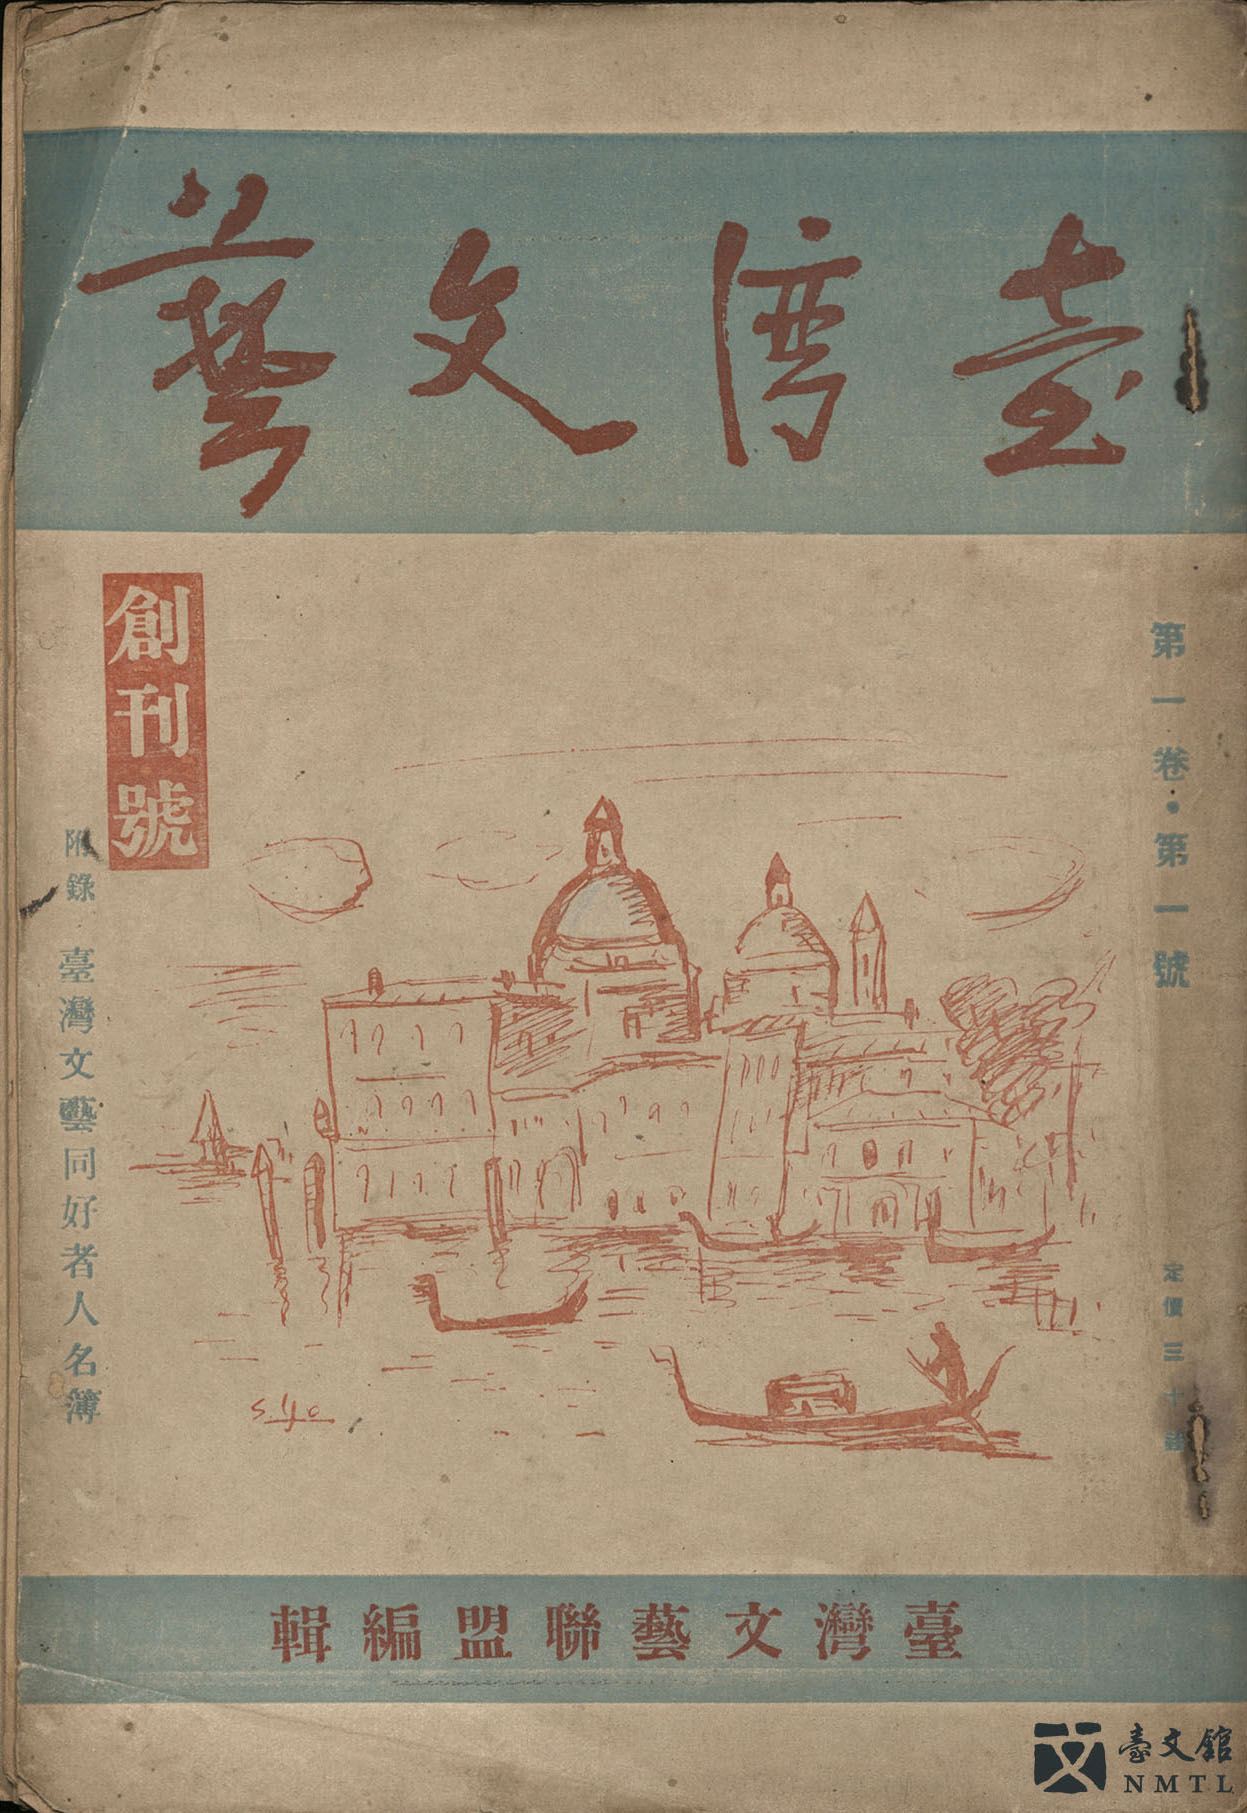 臺灣文藝
第一卷・第一號
定價三十錢
創刊號
附錄 臺灣文藝同好者人名簿
S. Yo
臺灣文藝聯盟編輯
臺文館
NMTL